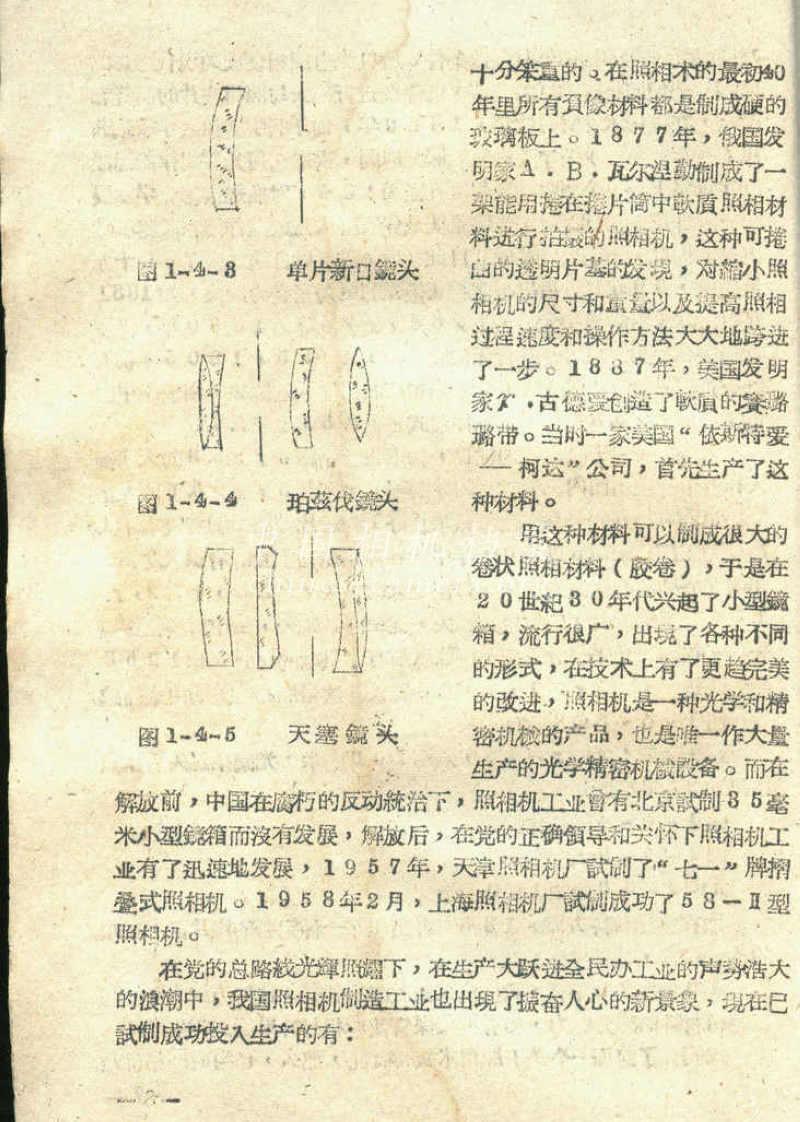 十分笨重的。在照相术的最初40
年里所有負像材料都是制成硬的
玻璃板上。1877年，俄国发
明家A．B．瓦尔涅勤制成了一
架能用捲在捲片筒中軟質照相材
料进行拍摄的照相机，这种可捲
曲的透明片基的发現，对縮小照
相机的尺寸和重量以及提高照相
过程速度和操作方法大大地跨进
了一步。1887年，美国发明
家．古德爱创造了軟質的賽璐
璐带。当时一家美国“依斯特爱
——柯达”公司，首先生产了这
种材料。
用这种材料可以制成很大的
卷状照相材料（胶卷），于是在
20世紀30年代兴起了小型鏡
箱，流行很广，出現了各种不同
的形式，在技术上有了更趋完美
的改进，照相机是一种光学和精
密机械的产品，也是唯一作大量
生产的光学精密机械設备。而在
解放前，中国在腐朽的反动統治下，照相机工业曾有北京試制35毫
米小型鏡箱而沒有发展，解放后，在党的正确領导和关怀下照相机工
业有了迅速地发展，1957年，天津照相机厂試制了“七一”牌摺
叠式照相机。1958年2月，上海照相机厂試制成功了58－Ⅱ型
照相机。
在党的总路綫光輝照耀下，在生产大跃进全民办工业的声势浩大
的浪潮中，我国照相机制造工业也出現了振奋人心的新景象，現在已
試制成功投入生产的有：
图1-4-3 单片新口鏡头
图1-4-4 珀茲伐鏡头
图1-4-5 天塞鏡头